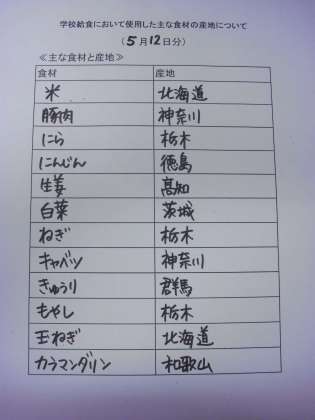 学校給食において使用した主な食材の産地について
(5月12日分)
≪主な食材と産地≫
食材 産地
米 北海道
豚肉 神奈川
にら 栃木
にんじん 徳島
生姜 高知
白菜 茨城
ねぎ 栃木
キャベツ 神奈川
きゅうり 群馬
もやし 栃木
玉ねぎ 北海道
カラマンダリン 和歌山